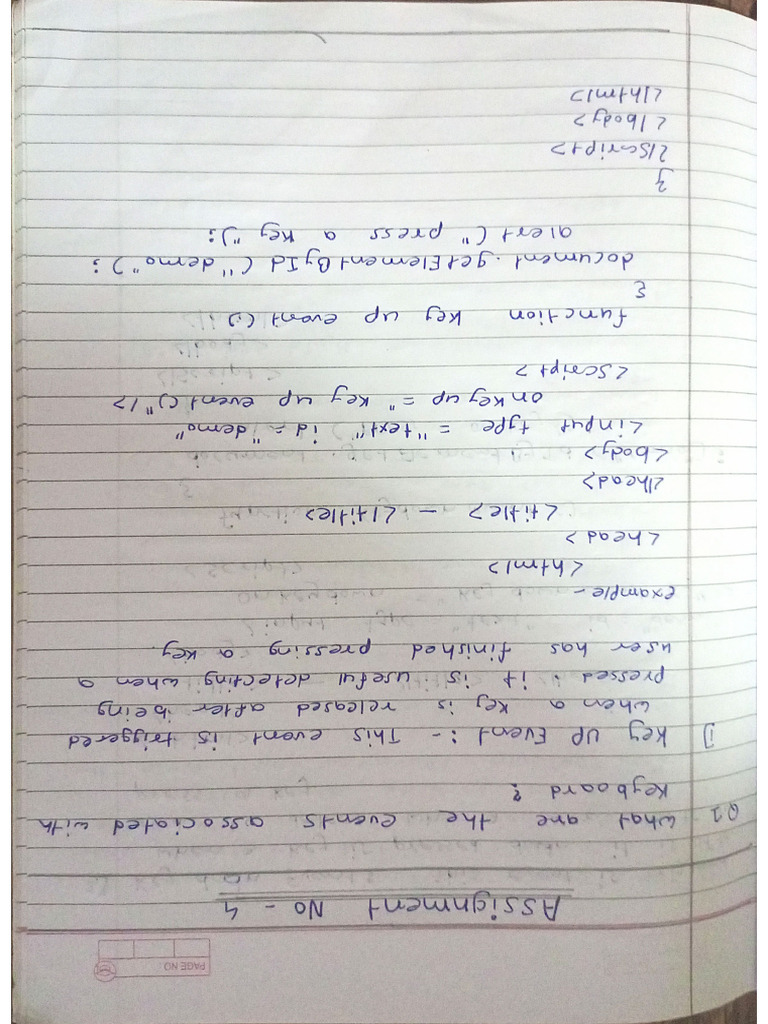 PAGE NO
Assignment No - 4
Q1 what are the events associated with
Keyboard ?
1) Key UP Event :- This event is triggered
when a key is released after being
pressed. it is useful detecting when a
user has finished pressing a key.
example -
<html>
<head>
<title> - </title>
</head>
<body>
<input type = "text" id = "demo"
onkeyup = "key up event()"/>
<script>
function key up event()
{
document.getElementById ("demo");
alert (" press a key ");
}
</script>
</body>
</html>